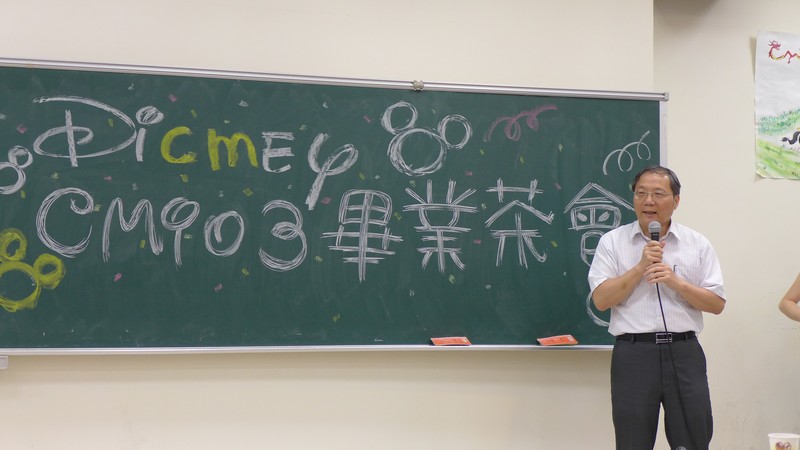 Dicmey
CM903畢業茶會